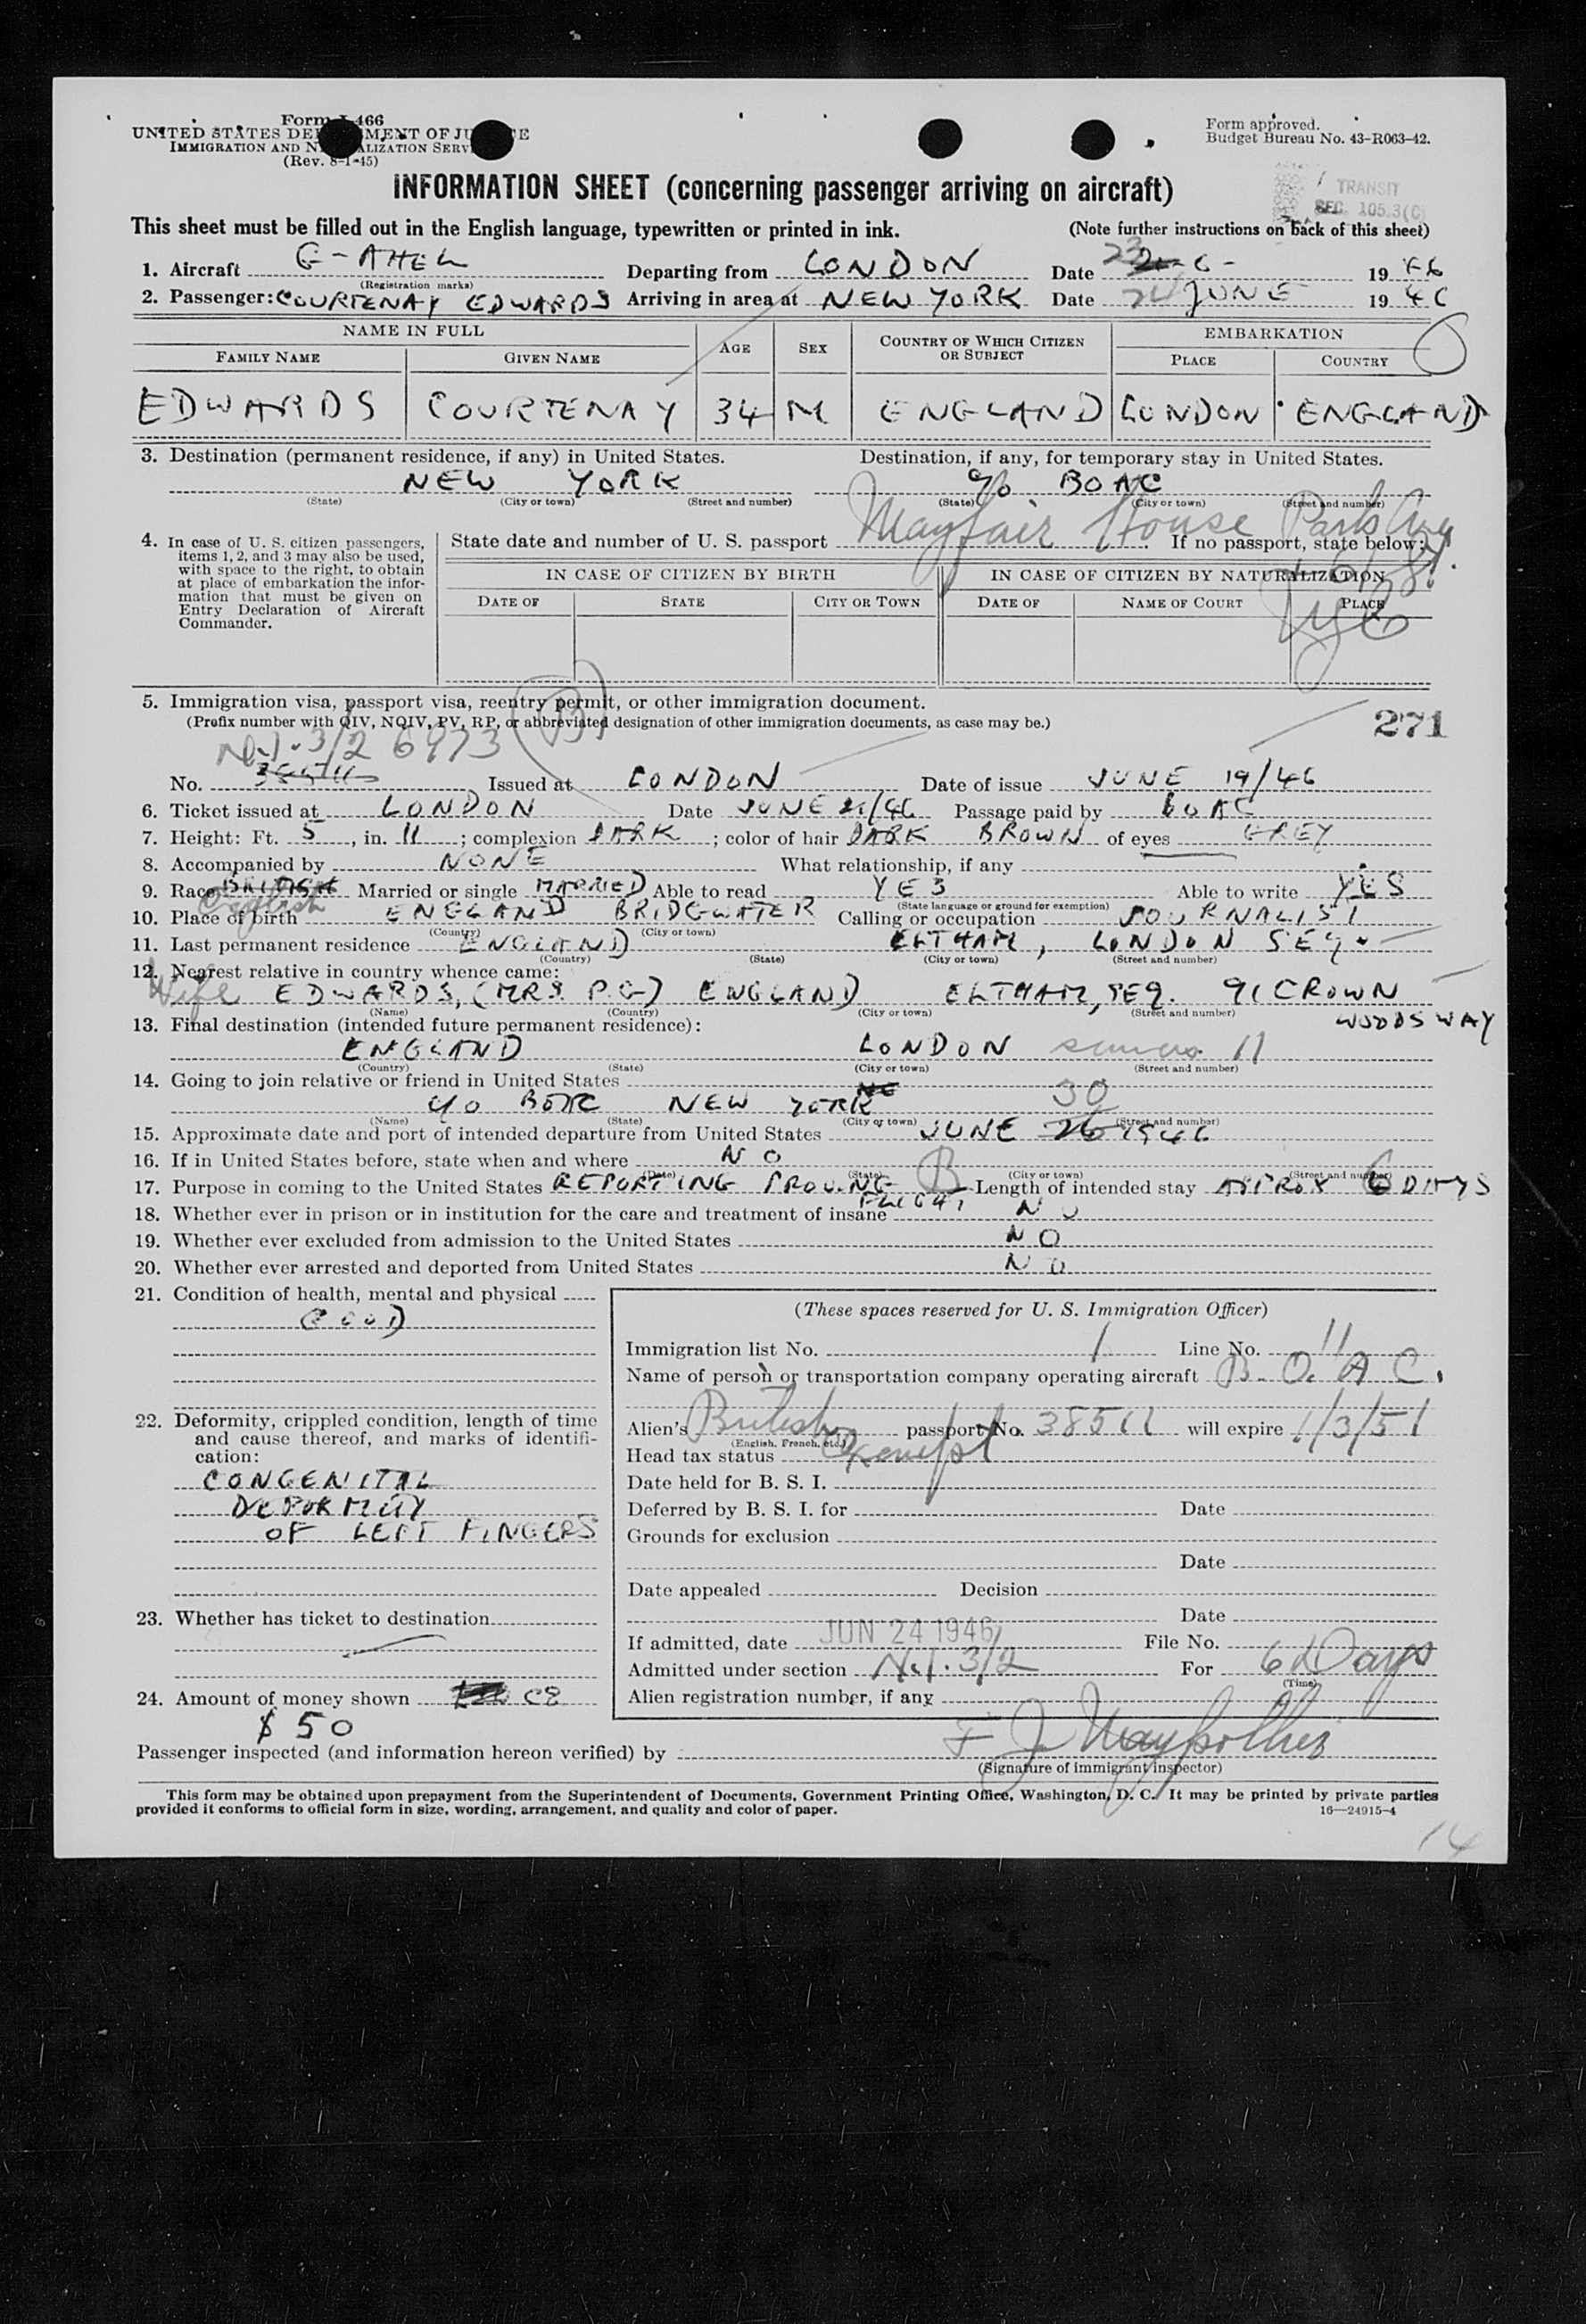 Form I-466
UNITED STATES DEPARTMENT OF JUSTICE
IMMIGRATION AND NATURALIZATION SERVICE
(Rev. 8-1-45)
Form approved.
Budget Bureau No. 43-R063-42.
INFORMATION SHEET (concerning passenger arriving on aircraft)
TRANSIT
SEC. 105.3(C)
This sheet must be filled out in the English language, typewritten or printed in ink. (Note further instructions on back of this sheet)
1. Aircraft G-AHEL Departing from LONDON Date 23 6- 1946
(Registration marks)
2. Passenger: COURTENAY EDWARDS Arriving in area at NEW YORK Date 24 JUNE 1946
NAME IN FULL AGE SEX COUNTRY OF WHICH CITIZEN OR SUBJECT EMBARKATION
FAMILY NAME GIVEN NAME PLACE COUNTRY
EDWARDS COURTENAY 34 M ENGLAND LONDON ENGLAND
3. Destination (permanent residence, if any) in United States. Destination, if any, for temporary stay in United States.
NEW YORK c/o BOAC
(State) (City or town) (Street and number) (State) (City or town) (Street and number)
Mayfair House Park Ave
4. In case of U. S. citizen passengers, items 1, 2, and 3 may also be used, with space to the right, to obtain at place of embarkation the information that must be given on Entry Declaration of Aircraft Commander.
State date and number of U. S. passport If no passport, state below:
IN CASE OF CITIZEN BY BIRTH IN CASE OF CITIZEN BY NATURALIZATION
DATE OF STATE CITY OR TOWN DATE OF NAME OF COURT PLACE
NYC
5. Immigration visa, passport visa, reentry permit, or other immigration document.
(Prefix number with QIV, NQIV, PV, RP, or abbreviated designation of other immigration documents, as case may be.)
(B)
271
N.I. 3/2 6973
No. 38511 Issued at LONDON Date of issue JUNE 19/46
6. Ticket issued at LONDON Date JUNE 21/46 Passage paid by BOAC
7. Height: Ft. 5, in. 11; complexion DARK; color of hair DARK BROWN of eyes GREY
8. Accompanied by NONE What relationship, if any
9. Race BRITISH Married or single MARRIED Able to read YES Able to write YES
English
(State language or ground for exemption)
10. Place of birth ENGLAND BRIDGWATER Calling or occupation JOURNALIST
(Country) (City or town)
11. Last permanent residence ENGLAND ELTHAM, LONDON SE9.
(Country) (State) (City or town) (Street and number)
12. Nearest relative in country whence came:
Wife EDWARDS, (MRS. P.G) ENGLAND ELTHAM, SE9. 91 CROWN WOODS WAY
(Name) (Country) (City or town) (Street and number)
13. Final destination (intended future permanent residence):
ENGLAND LONDON same as 11
(Country) (State) (City or town) (Street and number)
14. Going to join relative or friend in United States
c/o BOAC NEW YORK
(Name) (State) (City or town) (Street and number)
30
15. Approximate date and port of intended departure from United States JUNE 26 1946
16. If in United States before, state when and where NO
(Date) (State) (City or town) (Street and number)
17. Purpose in coming to the United States REPORTING PROVING FLIGHT B Length of intended stay APPROX 6 DAYS
18. Whether ever in prison or in institution for the care and treatment of insane NO
19. Whether ever excluded from admission to the United States NO
20. Whether ever arrested and deported from United States NO
21. Condition of health, mental and physical
GOOD
22. Deformity, crippled condition, length of time and cause thereof, and marks of identification:
CONGENITAL
DEFORMITY
OF LEFT FINGERS
23. Whether has ticket to destination
24. Amount of money shown
$50
(These spaces reserved for U. S. Immigration Officer)
Immigration list No. 1 Line No. 11
Name of person or transportation company operating aircraft B. O. A. C.
Alien's British passport No. 38511 will expire 1/3/51
(English, French, etc.)
Head tax status Exempt
Date held for B. S. I.
Deferred by B. S. I. for Date
Grounds for exclusion
Date
Date appealed Decision
Date
If admitted, date JUN 24 1946 File No.
Admitted under section N.I. 3/2 For 6 Days
(Time)
Alien registration number, if any
Passenger inspected (and information hereon verified) by F J
(Signature of immigrant inspector)
This form may be obtained upon prepayment from the Superintendent of Documents, Government Printing Office, Washington, D. C. It may be printed by private parties
provided it conforms to official form in size, wording, arrangement, and quality and color of paper. 16—24915-4
14